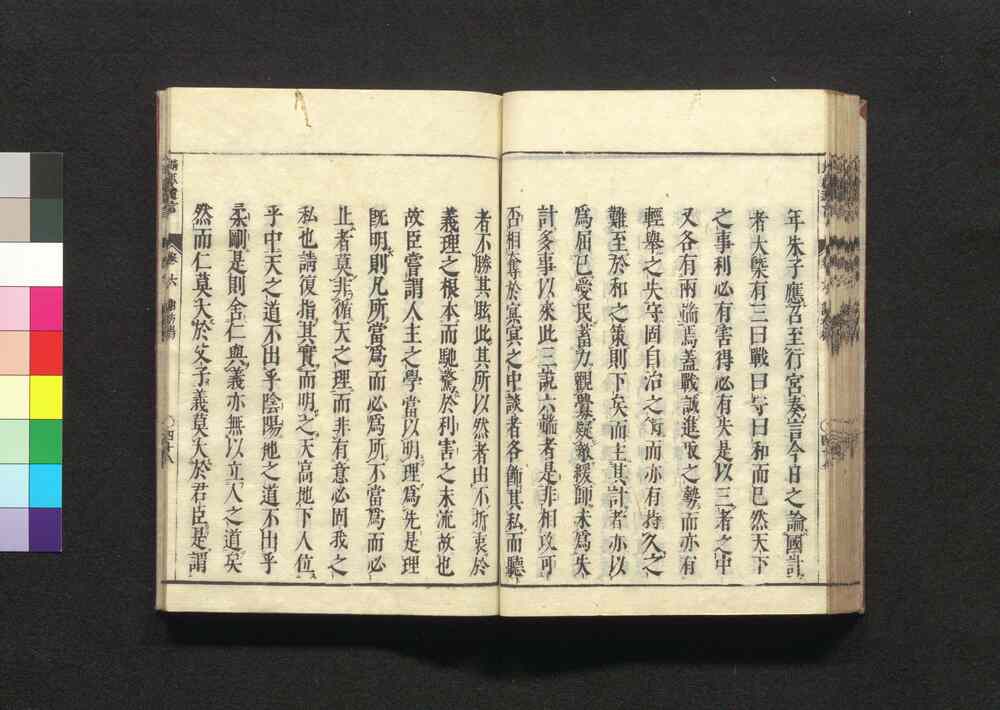 年朱子應召至行宮奏言今日之論國計
者大槩有三曰戰曰守曰和而已然天下
之事利必有害得必有失是以三者之中
又各有兩端焉蓋戰誠進取之勢而亦有
輕舉之失守固自治之術而亦有持久之
難至於和之策則下矣而主其計者亦以
爲屈已愛民蓄力觀釁疑敵緩師未爲失
計多事以來此三說六端者是非相攻可
否相奪於冥冥之中談者各飾其私而聽
者不勝其眩此其所以然者由不折衷於
義理之根本而馳騖於利害之末流故也
故臣嘗謂人主之學當以明理爲先是理
旣明則凡所當爲而必爲所不當爲而必
止者莫非循天之理而非有意必固我之
私也請復指其實而明之天高地下人位
乎中天之道不出乎陰陽地之道不出乎
柔剛是則舍仁與義亦無以立人之道矣
然而仁莫大於父子義莫大於君臣是謂
卷六
四十八